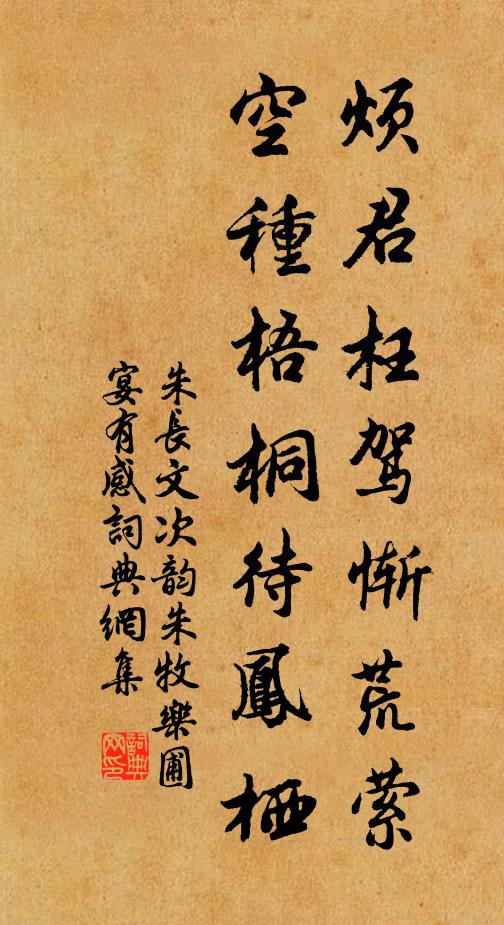 烦君枉驾惭荒萦
空種梧桐待鳳栖
朱長文次韵朱牧樂圃
宴有感詞典網集
詞典
网印